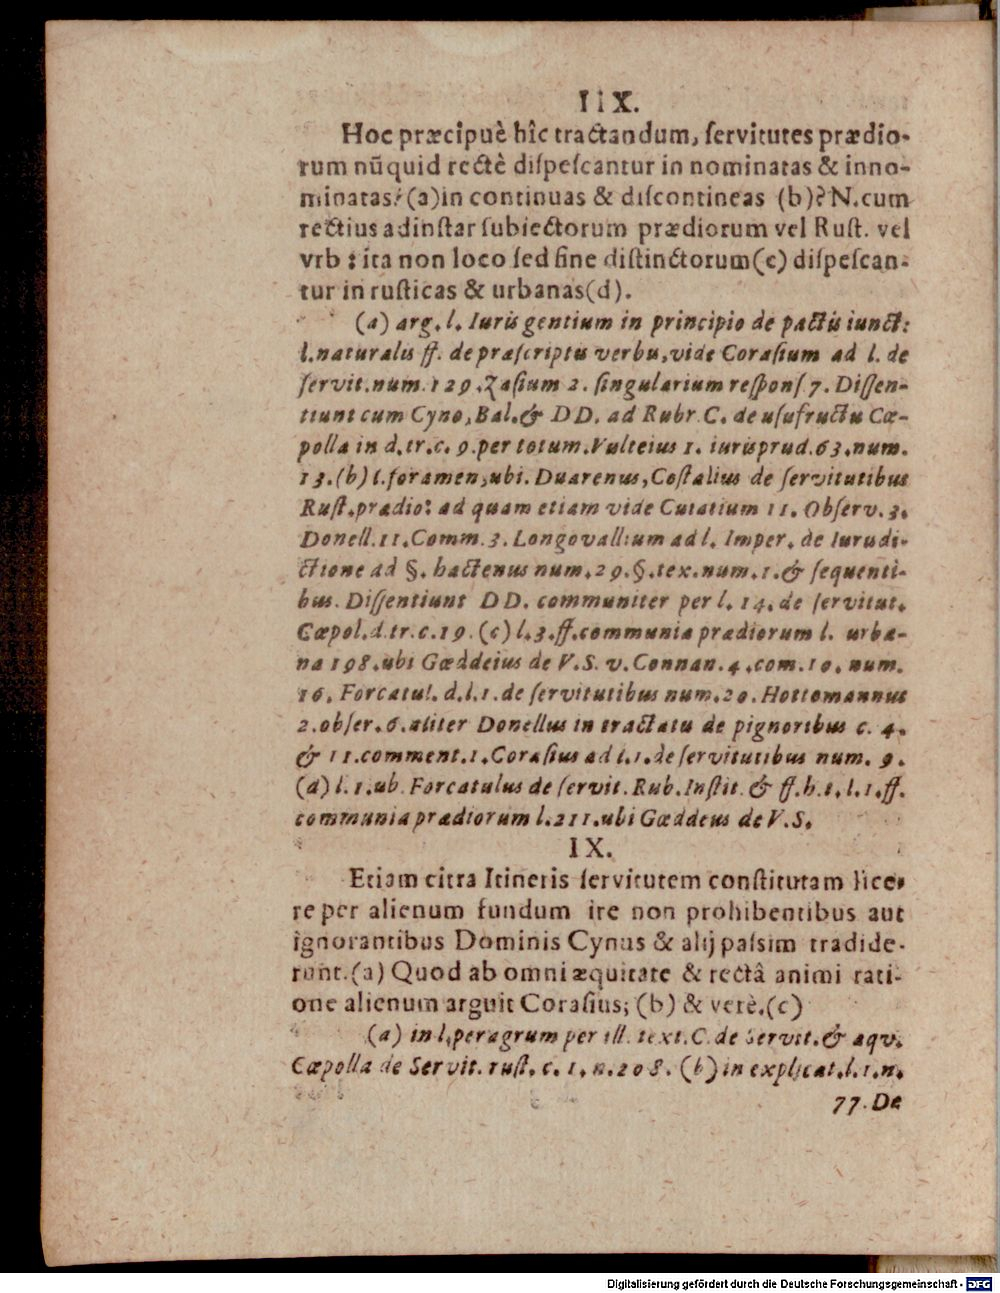 IIX.
Hoc præcipuè hîc tractandum, ſervitutes prædio-
rum nũquid rectè diſpeſcantur in nominatas & inno-
minatas? (a) in continuas & diſcontineas (b)? N. cum
rectius ad inſtar ſubiectorum prædiorum vel Ruſt. vel
vrb: ita non loco ſed fine diſtinctorum (c) diſpeſcan-
tur in ruſticas & urbanas (d).
(a) arg. l. Iuris gentium in principio de pactis iunct:
l. naturalis ff. de præſcriptis verbis, vide Coraſium ad l. de
ſervit. num. 129. Zaſium 2. ſingularium reſponſ 7. Diſſen-
tiunt cum Cyno, Bal. & DD. ad Rubr. C. de uſufructu Cæ-
polla in d. tr. c. 9. per totum. Vulteius 1. iurisprud. 63. num.
13. (b) l. foramen, ubi. Duarenus, Coſtalius de ſervitutibus
Ruſt. prædio: ad quam etiam vide Cuiatium 11. Obſerv. 3.
Donell. 11. Comm. 3. Longovallium ad l. Imper. de Iurudi-
ctione ad §. hactenus num. 29. §. tex. num. 1. & ſequenti-
bus. Diſſentiunt DD. communiter per l. 14. de ſervitut.
Cæpol. d. tr. c. 19. (c) l. 3. ff. communia prædiorum l. urba-
na 198. ubi Gæddeius de V. S. v. Connan. 4. com. 10. num.
16. Forcatul. d. l. 1. de ſervitutibus num. 20. Hottomannus
2. obſer. 6. aliter Donellus in tractatu de pignoribus c. 4.
& 11. comment. 1. Coraſius ad l. 1. de ſervitutibus num. 9.
(d) l. 1. ub. Forcatulus de ſervit. Rub. Inſtit. & ff. h. t. l. 1. ff.
communia prædiorum l. 211. ubi Gæddeus de V. S.
IX.
Etiam citra Itineris ſervitutem conſtitutam lice-
re per alienum fundum ire non prohibentibus aut
ignorantibus Dominis Cynus & alij paſsim tradide-
runt. (a) Quod ab omni æquitate & rectâ animi rati-
one alienum arguit Coraſius; (b) & verè. (c)
(a) in l. peragrum per ill. text. C. de Servit. & aqu.
Cæpolla de Servit. ruſt. c. 1. n. 208. (b) in explicat. l. 1. n.
77. De
Digitalisierung gefördert durch die Deutsche Forschungsgemeinschaft - DFG